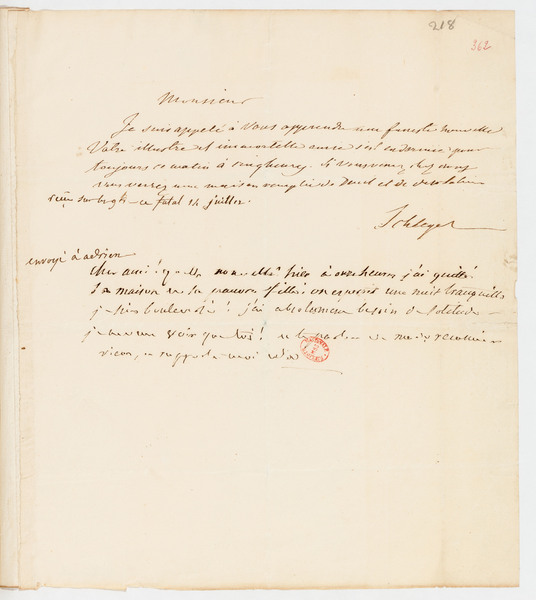 218
362
Monsieur
Je suis appelé à vous apprendre une funeste nouvelle
Votre illustre et immortelle amie s'est endormie pour
toujours ce matin à cinq heures. Si vous venez chez nous
vous verrez une maison remplie de deuil et de désolation
ce fatal 14 juillet.
Schlegel
envoyé à adrien
cher ami! quelle nouvelle hier à onze heures j'ai quitté
la maison de sa pauvre fille, on espéroit une nuit tranquille
je suis bouleversé! j'ai absolument besoin de solitude
je ne veux voir que toi!
viens,